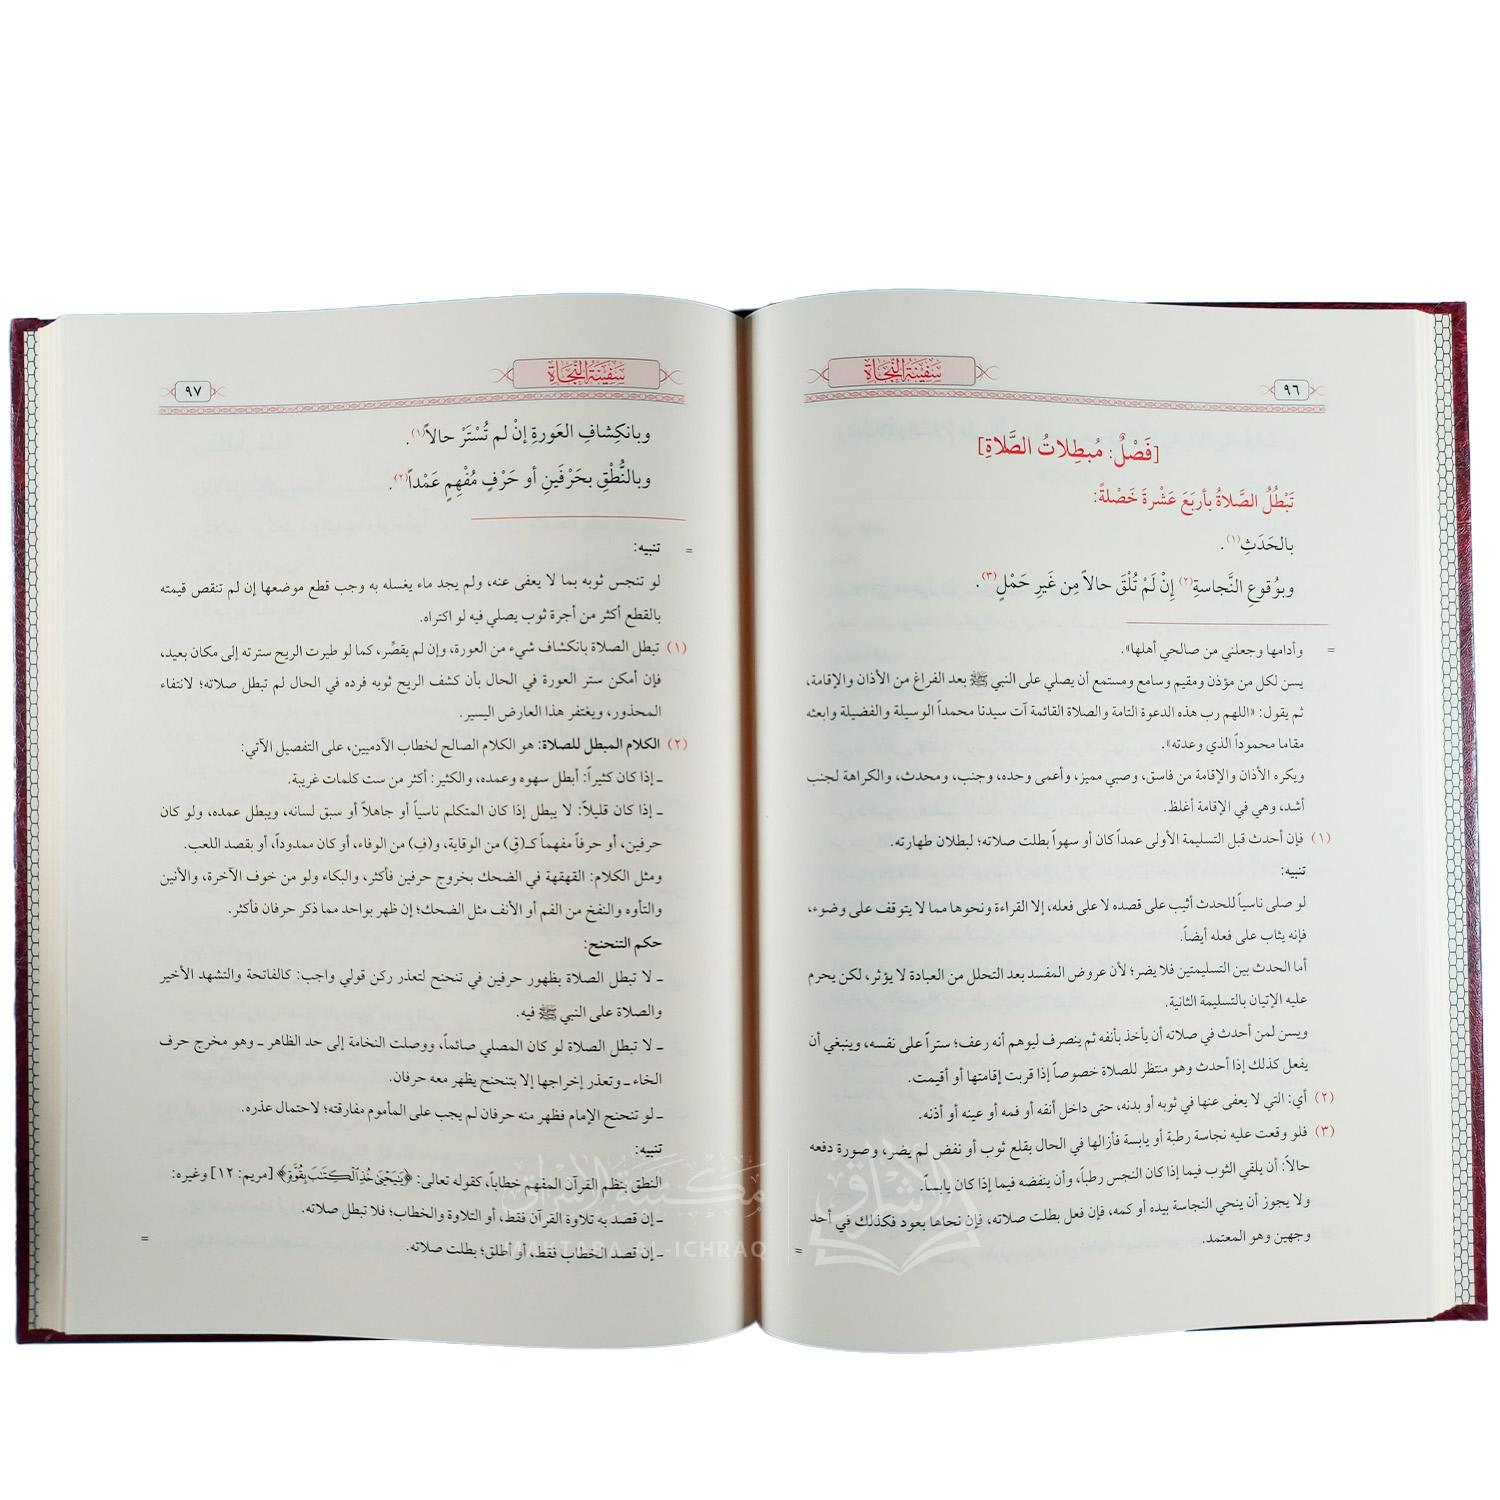 سفينة النجاة
٩٦
[فَصْلٌ: مُبطِلاتُ الصَّلاةِ]
تَبْطُلُ الصَّلاةُ بأربَعَ عَشْرةَ خَصْلةً:
بالحَدَثِ(١).
وبوُقوعِ النَّجاسةِ(٢) إنْ لَمْ تُلْقَ حالاً مِن غَيرِ حَمْلٍ(٣).
= وأدامها وجعلني من صالحي أهلها».
يسن لكل من مؤذن ومقيم وسامع ومستمع أن يصلي على النبي ﷺ بعد الفراغ من الأذان والإقامة،
ثم يقول: «اللهم رب هذه الدعوة التامة والصلاة القائمة آت سيدنا محمداً الوسيلة والفضيلة وابعثه
مقاما محموداً الذي وعدته».
ويكره الأذان والإقامة من فاسق، وصبي مميز، وأعمى وحده، وجنب، ومحدث، والكراهة لجنب
أشد، وهي في الإقامة أغلظ.
(١) فإن أحدث قبل التسليمة الأولى عمداً كان أو سهواً بطلت صلاته؛ لبطلان طهارته.
تنبيه:
لو صلى ناسياً للحدث أثيب على قصده لا على فعله، إلا القراءة ونحوها مما لا يتوقف على وضوء،
فإنه يثاب على فعله أيضاً.
أما الحدث بين التسليمتين فلا يضر؛ لأن عروض المفسد بعد التحلل من العبادة لا يؤثر، لكن يحرم
عليه الإتيان بالتسليمة الثانية.
ويسن لمن أحدث في صلاته أن يأخذ بأنفه ثم ينصرف ليوهم أنه رعف؛ ستراً على نفسه، وينبغي أن
يفعل كذلك إذا أحدث وهو منتظر للصلاة خصوصاً إذا قربت إقامتها أو أقيمت.
(٢) أي: التي لا يعفى عنها في ثوبه أو بدنه، حتى داخل أنفه أو فمه أو عينه أو أذنه.
(٣) فلو وقعت عليه نجاسة رطبة أو يابسة فأزالها في الحال بقلع ثوب أو نفض لم يضر، وصورة دفعه
حالاً: أن يلقي الثوب فيما إذا كان النجس رطباً، وأن ينفضه فيما إذا كان يابساً.
ولا يجوز أن ينحي النجاسة بيده أو كمه، فإن فعل بطلت صلاته، فإن نحاها بعود فكذلك في أحد
وجهين وهو المعتمد.
=
سفينة النجاة
٩٧
وبانكِشافِ العَورةِ إنْ لم تُسْتَرْ حالاً(١).
وبالنُّطْقِ بحَرْفَينِ أو حَرْفٍ مُفْهِمٍ عَمْداً(٢).
= تنبيه:
لو تنجس ثوبه بما لا يعفى عنه، ولم يجد ماء يغسله به وجب قطع موضعها إن لم تنقص قيمته
بالقطع أكثر من أجرة ثوب يصلي فيه لو اكتراه.
(١) تبطل الصلاة بانكشاف شيء من العورة، وإن لم يقصِّر، كما لو طيرت الريح سترته إلى مكان بعيد،
فإن أمكن ستر العورة في الحال بأن كشف الريح ثوبه فرده في الحال لم تبطل صلاته؛ لانتفاء
المحذور، ويغتفر هذا العارض اليسير.
(٢) الكلام المبطل للصلاة: هو الكلام الصالح لخطاب الآدميين، على التفصيل الآتي:
ـ إذا كان كثيراً: أبطل سهوه وعمده، والكثير: أكثر من ست كلمات غريبة.
ـ إذا كان قليلاً: لا يبطل إذا كان المتكلم ناسياً أو جاهلاً أو سبق لسانه، ويبطل عمده، ولو كان
حرفين، أو حرفاً مفهماً كـ(قِ) من الوقاية، و(فِ) من الوفاء، أو كان ممدوداً، أو بقصد اللعب.
ومثل الكلام: القهقهة في الضحك بخروج حرفين فأكثر، والبكاء ولو من خوف الآخرة، والأنين
والتأوه والنفخ من الفم أو الأنف مثل الضحك؛ إن ظهر بواحد مما ذكر حرفان فأكثر.
حكم التنحنح:
ـ لا تبطل الصلاة بظهور حرفين في تنحنح لتعذر ركن قولي واجب: كالفاتحة والتشهد الأخير
والصلاة على النبي ﷺ فيه.
ـ لا تبطل الصلاة لو كان المصلي صائماً، ووصلت النخامة إلى حد الظاهر ـ وهو مخرج حرف
الخاء ـ وتعذر إخراجها إلا بتنحنح يظهر معه حرفان.
ـ لو تنحنح الإمام فظهر منه حرفان لم يجب على المأموم مفارقته؛ لاحتمال عذره.
تنبيه:
النطق بنظم القرآن المفهم خطاباً، كقوله تعالى: ﴿يَٰيَحْيَىٰ خُذِ ٱلْكِتَٰبَ بِقُوَّةٍ﴾ [مريم: ١٢] وغيره:
ـ إن قصد به تلاوة القرآن فقط، أو التلاوة والخطاب؛ فلا تبطل صلاته.
ـ إن قصد الخطاب فقط، أو أطلق؛ بطلت صلاته.
=
مكتبة الإشراق
MAKTABA AL-ICHRAQ
الإشراق